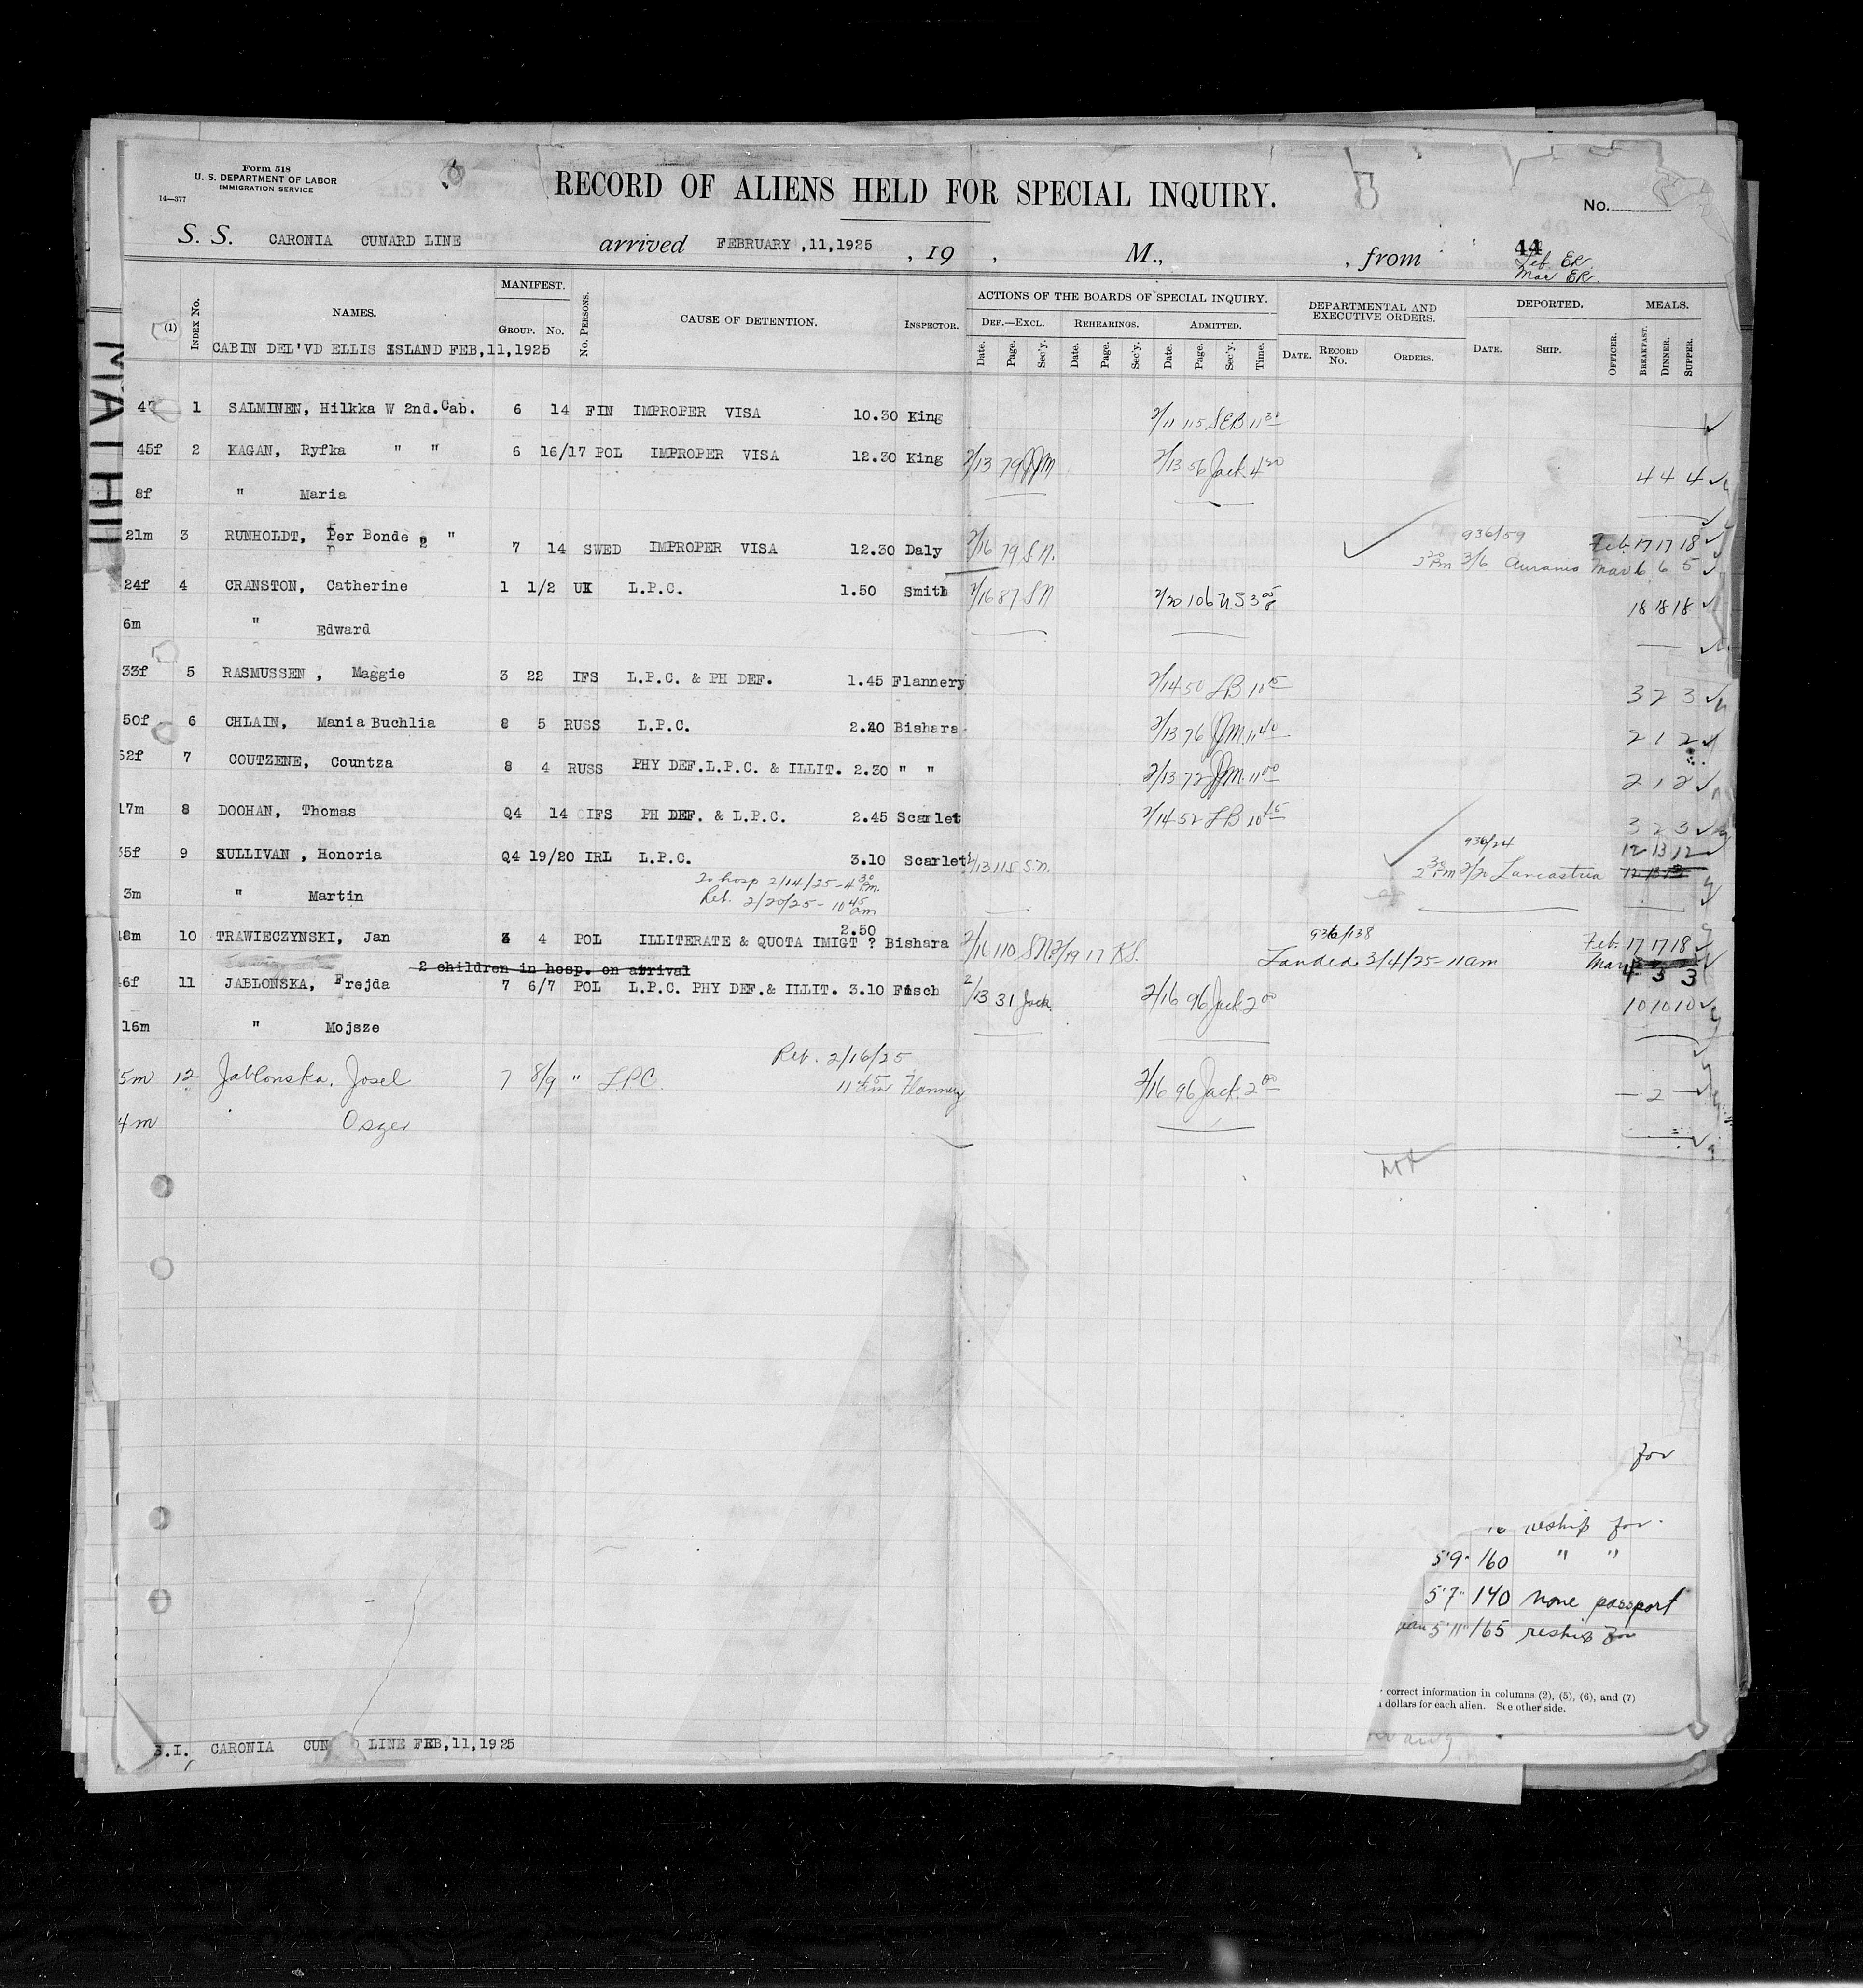 Form 518
U. S. DEPARTMENT OF LABOR
IMMIGRATION SERVICE
14—377
RECORD OF ALIENS HELD FOR SPECIAL INQUIRY.
No.
S. S. CARONIA CUNARD LINE arrived FEBRUARY ,11,1925 , 19 , M., , from
44
Feb ER
Mar ER
(1) INDEX No. NAMES. MANIFEST. GROUP. No. No. PERSONS. CAUSE OF DETENTION. INSPECTOR. ACTIONS OF THE BOARDS OF SPECIAL INQUIRY. DEF.—EXCL. Date. Page. Sec'y. REHEARINGS. Date. Page. Sec'y. ADMITTED. Date. Page. Sec'y. Time. DEPARTMENTAL AND EXECUTIVE ORDERS. DATE. RECORD No. ORDERS. DEPORTED. DATE. SHIP. OFFICER. MEALS. BREAKFAST. DINNER. SUPPER.
CABIN DEL'VD ELLIS ISLAND FEB,11,1925
1 SALMINEN, Hilkka W 2nd.Cab. 6 14 FIN IMPROPER VISA 10.30 King 2/11 115 SEB 11 30
45f 2 KAGAN, Ryfka " " 6 16/17 POL IMPROPER VISA 12.30 King 2/13 79 JJM 2/13 56 Jack 4 20 4 4 4
8f " Maria
21m 3 RUNHOLDT, Per Bonde 2 " 7 14 SWED IMPROPER VISA 12.30 Daly 2/16 79 S.N. 936/59 Feb 17 17 18
2 20 Pm 3/6 Aurania Mar 6 6 5
24f 4 CRANSTON, Catherine 1 1/2 UK L.P.C. 1.50 Smith 2/16 87 SN 2/20 106 NS 3 05 18 18 18
6m " Edward
33f 5 RASMUSSEN , Maggie 3 22 IFS L.P.C. & PH DEF. 1.45 Flannery 2/14 50 LB 10 15 3 2 3
50f 6 CHLAIN, Mania Buchlia 8 5 RUSS L.P.C. 2.40 Bishara 2/13 76 JJM 11 40 2 1 2
52f 7 COUTZENE, Countza 8 4 RUSS PHY DEF.L.P.C. & ILLIT. 2.30 " " 2/13 72 JJM 11 00 2 1 2
17m 8 DOOHAN, Thomas Q4 14 IFS PH DEF. & L.P.C. 2.45 Scarlet 2/14 52 LB 10 45 3 2 3
35f 9 SULLIVAN , Honoria Q4 19/20 IRL L.P.C. 3.10 Scarlet 2/13 115 S.N. 936/24 12 13 12
2 30 Pm 2/20 Lancastria 12 13 12
To hosp 2/14/25 - 4 30 Pm.
3m " Martin Ret. 2/20/25 - 10 45 am
48m 10 TRAWIECZYNSKI, Jan 3 4 POL ILLITERATE & QUOTA IMIGT ? 2.50 Bishara 2/16 110 SN 2/19 17 KS. 936/138 Feb 17 17 18
Landed 3/4/25 - 11 am Mar 4 3 3
2 children in hosp. on atrival
46f 11 JABLONSKA, Frejda 7 6/7 POL L.P.C. PHY DEF.& ILLIT. 3.10 Fisch 2/13 31 Jack 2/16 96 Jack 2 00 10 10 10
16m " Mojsze
Ret. 2/16/25
5m 12 Jablonska, Josel 7 8/9 " L.P.C. 11 45 am Flannery 2/16 96 Jack 2 00 — 2 —
4m
for
reship for
5'9" 160 " "
5'7" 140 none passport
5'11" 165 reship for
correct information in columns (2), (5), (6), and (7)
dollars for each alien. See other side.
S.I. CARONIA CUNARD LINE FEB,11,1925